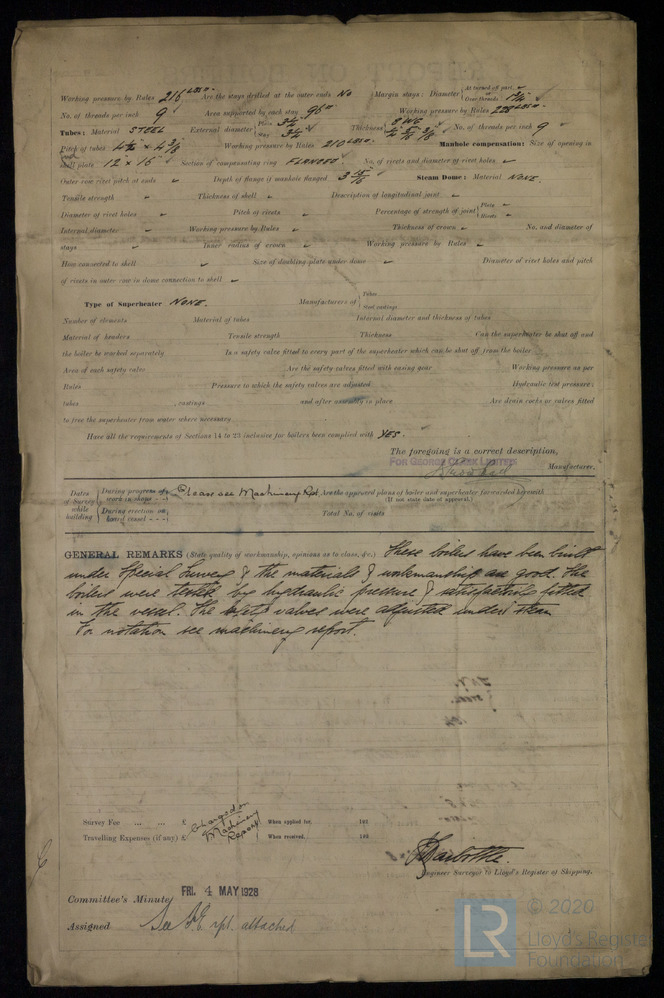 Working pressure by Rules 216 LBS□" Are the stays drilled at the outer ends No Margin stays: Diameter { At turned off part, or Over threads 1¾"
No. of threads per inch 9 Area supported by each stay 96□" Working pressure by Rules 228 LBS□"
Tubes: Material STEEL External diameter { Plain 3¼" Stay 3¼" Thickness { 8 WG ¼" 5/16" 3/8" No. of threads per inch 9
Pitch of tubes Working pressure by Rules 210 LBS□" Manhole compensation: Size of opening in
shell plate 12" × 16" Section of compensating ring FLANGED No. of rivets and diameter of rivet holes
Outer row rivet pitch at ends Depth of flange if manhole flanged Steam Dome: Material NONE.
Tensile strength Thickness of shell Description of longitudinal joint
Diameter of rivet holes Pitch of rivets Percentage of strength of joint { Plate Rivets
Internal diameter Working pressure by Rules Thickness of crown No. and diameter of
stays Inner radius of crown Working pressure by Rules
How connected to shell Size of doubling plate under dome Diameter of rivet holes and pitch
of rivets in outer row in dome connection to shell
Type of Superheater NONE. Manufacturers of { Tubes Steel castings
Number of elements Material of tubes Internal diameter and thickness of tubes
Material of headers Tensile strength Thickness Can the superheater be shut off and
the boiler be worked separately Is a safety valve fitted to every part of the superheater which can be shut off from the boiler
Area of each safety valve Are the safety valves fitted with easing gear Working pressure as per
Rules Pressure to which the safety valves are adjusted Hydraulic test pressure:
tubes , castings and after assembly in place Are drain cocks or valves fitted
to free the superheater from water where necessary
Have all the requirements of Sections 14 to 23 inclusive for boilers been complied with YES.
The foregoing is a correct description,
FOR GEORGE CLARK LIMITED
Manufacturer.
Dates of Survey while building { During progress of work in shops - - } Please see Machinery Rpt. Are the approved plans of boiler and superheater forwarded herewith (If not state date of approval.)
{ During erection on board vessel - - - } Total No. of visits
GENERAL REMARKS (State quality of workmanship, opinions as to class, &c.) These boilers have been built
under Special Survey & the materials & workmanship are good. The
boilers were tested by hydraulic pressure & satisfactorily fitted
in the vessel. The safety valves were adjusted under steam
For notation see machinery report.
Survey Fee ... ... £ Charged on When applied for, 192
Travelling Expenses (if any) £ Machinery Report When received, 192
Engineer Surveyor to Lloyd's Register of Shipping.
Committee's Minute FRI. 4 MAY 1928
Assigned See F.E. rpt. attached
LR © 2020
Lloyd's Register
Foundation